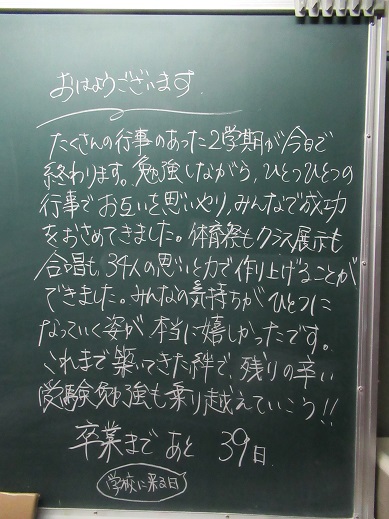 おはようございます.
たくさんの行事のあった2学期が今日で
終わります。勉強しながら、ひとつひとつの
行事でお互いを思いやり、みんなで成功
をおさめてきました。体育祭もクラス展示も
合唱も、34人の思いと力で作り上げることが
できました。みんなの気持ちがひとつに
なっていく姿が本当に嬉しかったです。
これまで築いてきた絆で、残りの辛い
受験勉強も乗り越えていこう!!
卒業まであと 39日.
学校に来る日